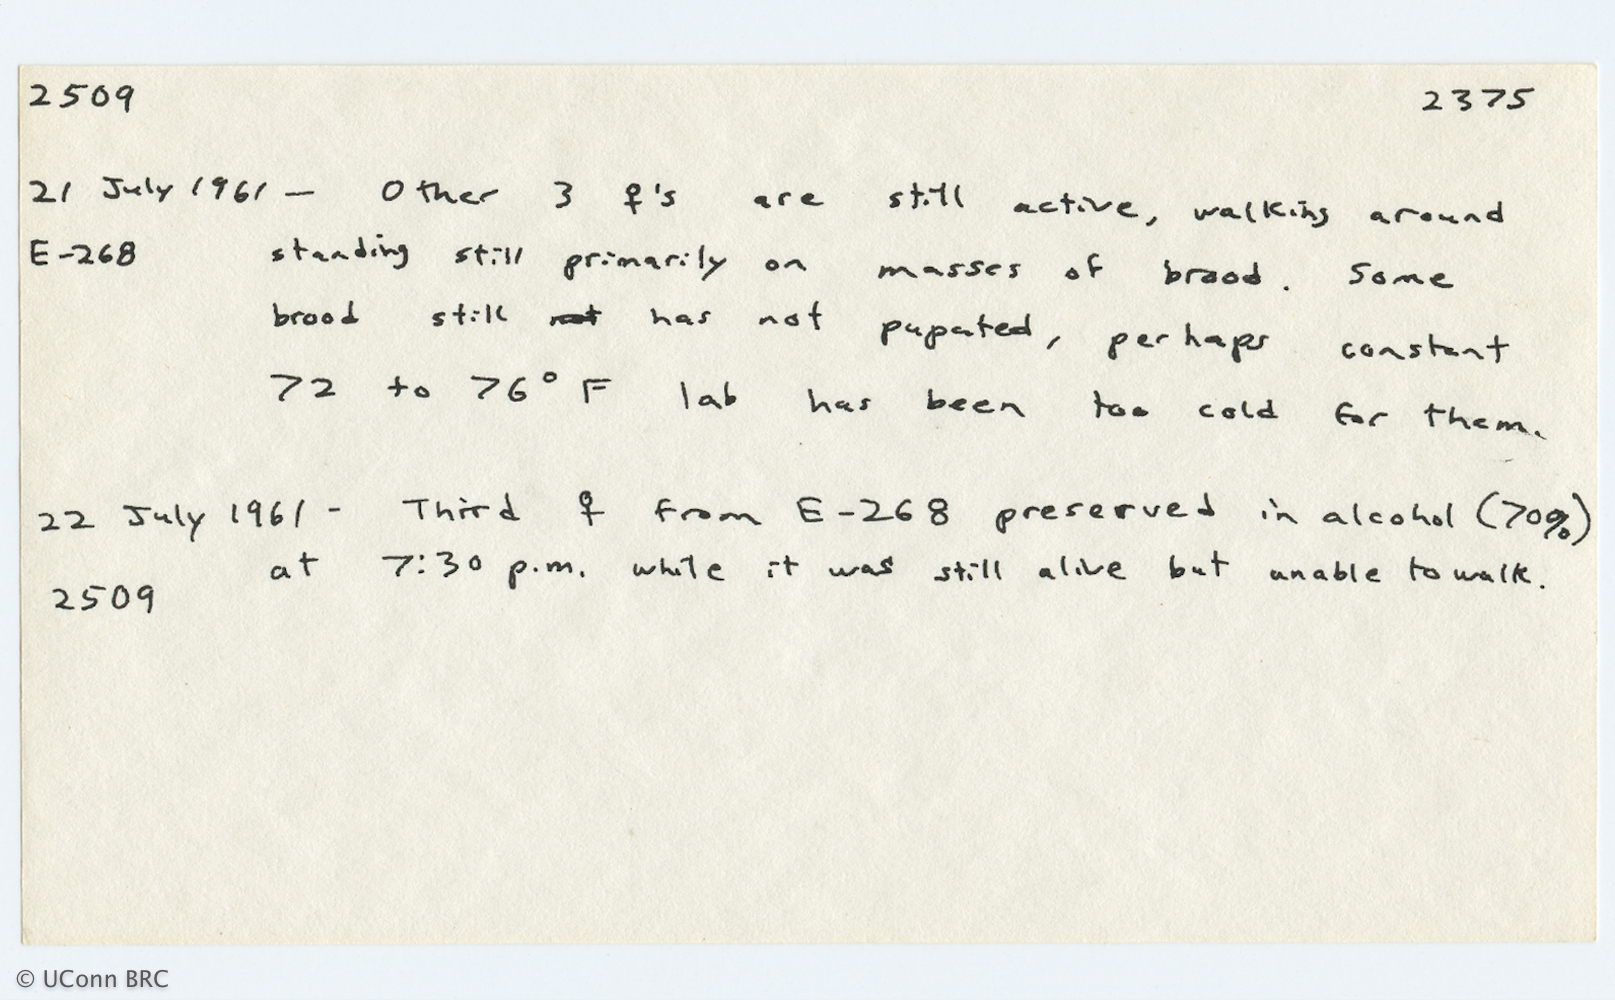 2509 2375
21 July 1961 — Other 3 ♀'s are still active, walking around
E-268 standing still primarily on masses of brood. Some
brood still not has not pupated, perhaps constant
72 to 76° F lab has been too cold for them.
22 July 1961 - Third ♀ from E-268 preserved in alcohol (70%)
at 7:30 p.m. while it was still alive but unable to walk.
2509
© UConn BRC